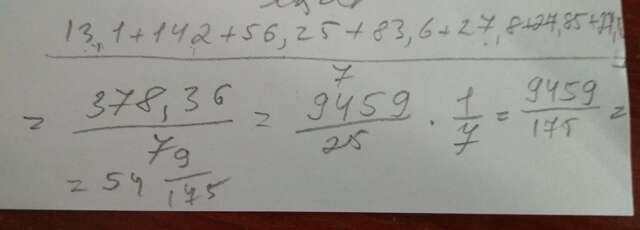 13,1+14,2+56,25+83,6+27,8+27,85+
7
= 378,36 / 7 = 9459 / 25 · 1 / 7 = 9459 / 175 =
= 54 9 / 175